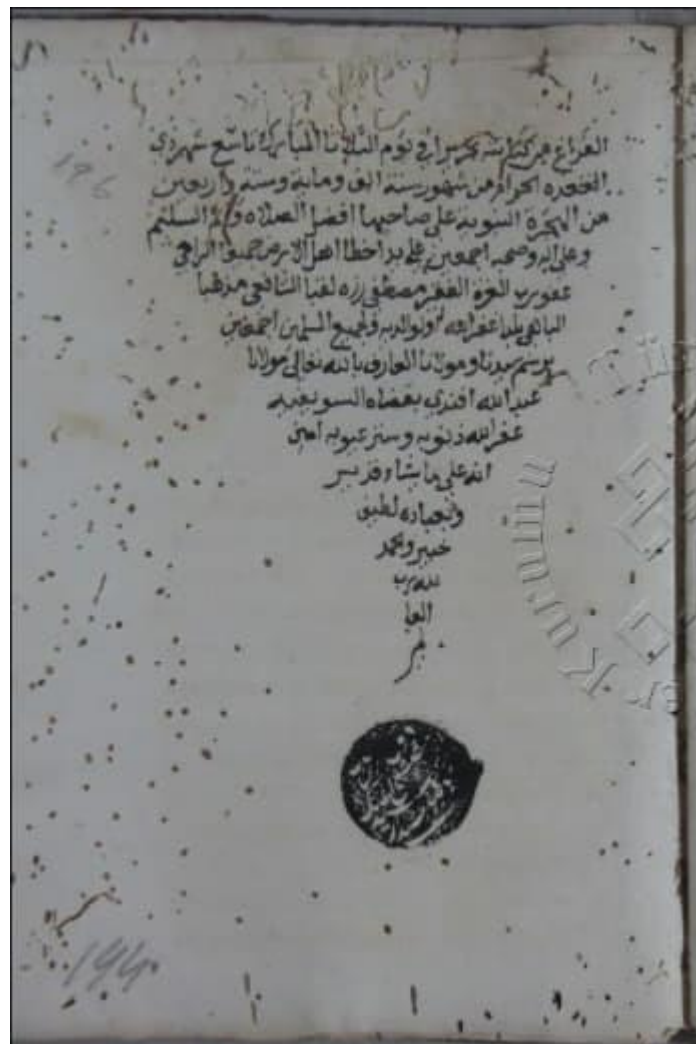 الفراغ من كتابته فى يوم الثلاثا المبارك تاسع شهر ذى
القعده الحرام من شهور سنة الف ومايه وستة واربعين
من الهجرة النبويه على صاحبها افضل الصلاه والتسليم
وعلى اله وصحبه اجمعين على يد اخطا اهل الارض الراجى
عفو ربه الفقير مصطفى لقبا الشافعى مذهبا
بلدا غفر الله له ولوالديه ولجميع المسلمين اجمعين
برسم سيدنا ومولانا العارف بالله تعالى مولانا
عبد الله افندى
غفر الله ذنوبه وستر عيوبه امين
انه على ما يشا قدير
وبعباده لطيف
خبير والحمد
لله رب
العا
لمين
196
194